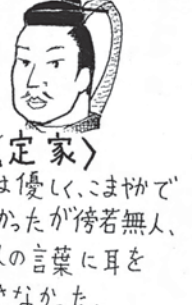 定家〉
は優しく、こまやかで
かったが傍若無人、
人の言葉に耳を
さなかった。